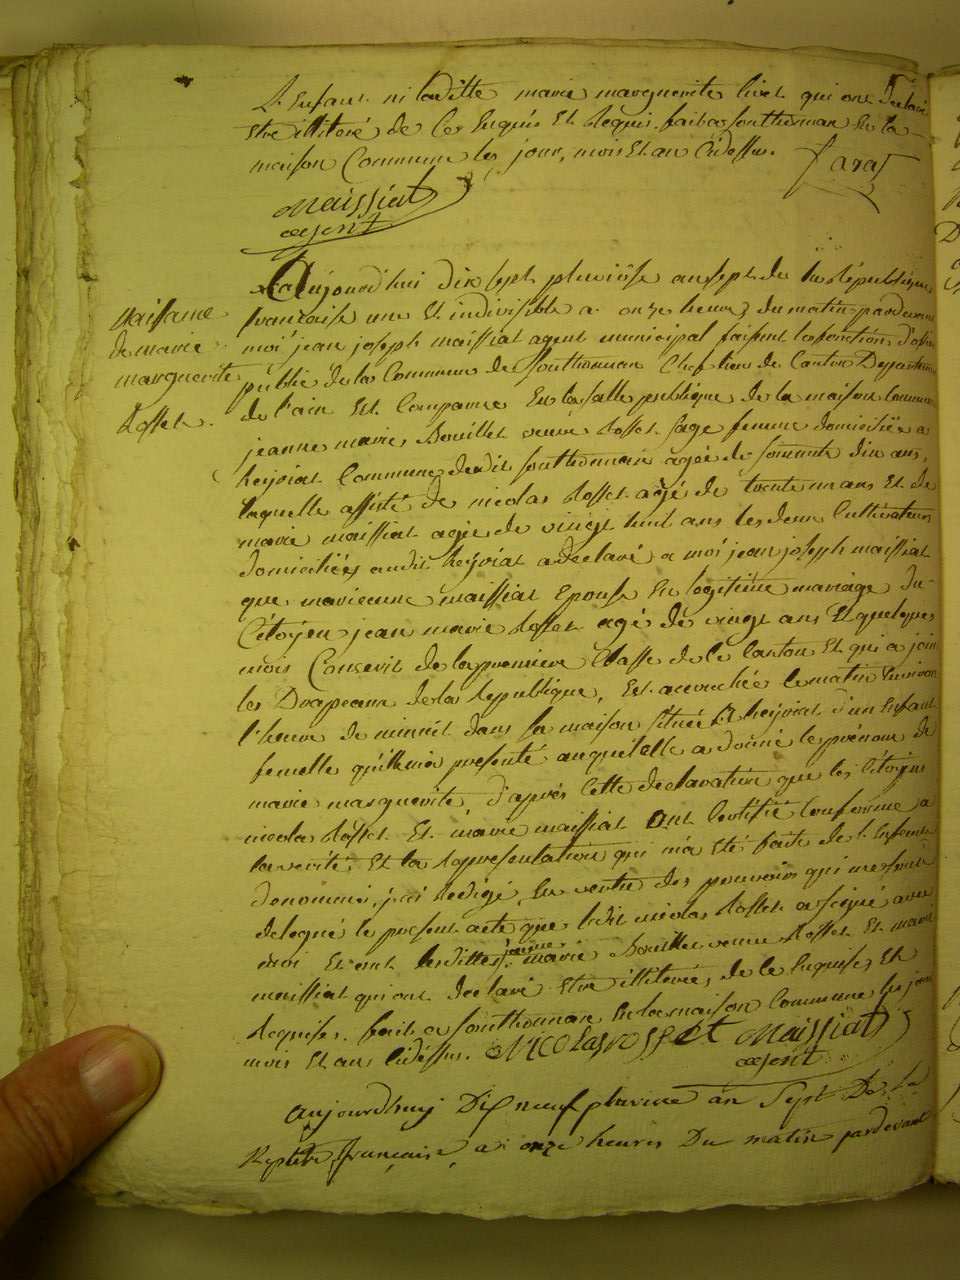 L'Enfant ni laditte marie marguerite livet qui ont declaré
Etre illiteré de Ce Enquis Et Requis. fait a sonthonnax En la
maison Commune les jour, mois Et an Cidessus.
farat
Maissiat
agent
Naissance
de marie
marguerite
Rosset.
Aujourd'hui dix sept pluviôse an sept de la République
francaise une Et indivisible a onze heures du matin pardevant
moi jean joseph maissiat agent municipal faisant les fonction d'offi
public de la Commune de sonthonnax Chef lieu de Canton Departem
de l'ain Est Comparue En la salle publique de la maison Commune
jeanne marie Bouillet veuve Rosset sage femme domiciliée a
heyriat Commune dudit sonthonnax agée de soixante dix ans,
laquelle assisté de nicolas Rosset agé de trente un ans Et de
marie maissiat agée de vingt huit ans les deux Cultivateurs
domiciliées audit heyriat a declaré a moi jean joseph maissiat
que marienne maissiat Epouse En legitime mariage du
Citoyen jean marie Rosset agé de vingt ans Et quelques
mois Conscrit de la premiere Classe de le Canton Et qui a join
les Drapeaux de la Republique, Est accouchée le matin Environ
l'heure de minuit dans sa maison située a heyriat d'un Enfant
femelle qu'elle m'a presenté auquel elle a donné les prénoms de
marie marguerite, d'après Cette declaration que les Citoyens
nicolas Rosset Et marie maissiat Ont Certifié Conforme a
la verité, Et la Representation qui m'a Eté faite de l'Enfant
denommé, j'ai Redigé En vertu des pouvoirs qui me sont
delegué le present acte que ledit nicolas Rosset a signé avec
moi Et ont lesdittes jeanne marie Bouillet veuve Rosset Et marie
maissiat qui ont declaré Etre illiterées de Ce Enquises Et
Requises. fait a sonthonnax En la maison Commune les jour
mois Et an Cidessus. Nicolas rosset Maissiat
agent
Aujourdhuy Dix neuf pluviose an Sept De La
Repube. française a onze heures Du matin pardevant